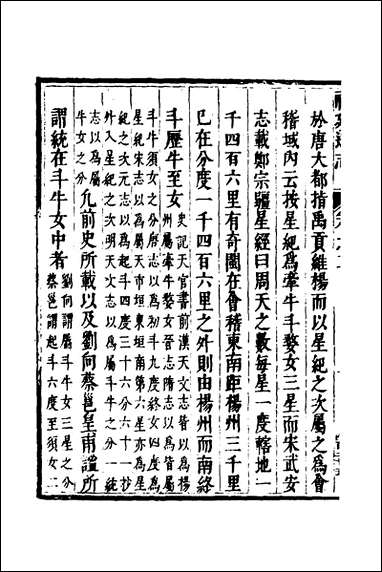 於唐大都指禹貢維楊而以星紀之次屬之為會
稽域內云按星紀為牽牛斗婺女三星而宋武安
志載鄭宗疆星經曰周天之數每星一度轄地一
千四百六里有奇閩在會稽東南距楊州三千里
已在分度一千四百六里之外則由楊州而南絡
斗歷牛至女史記天官書前漢天文志皆以為楊
州屬牽牛婺女晉志隋志以為皆屬
斗牛須女之分唐志以為初斗九度終女四度為
星紀宋志以為屬天市垣東垣南第六星亦為星
紀之次元志以為起斗四度三十六分六十一抄
外入星紀之次明天文志以為斗牛之分一統
志以為屬
牛女之分凢前史所載以及劉向蔡邕皇甫謐所
謂統在斗牛女中者劉向謂屬斗牛女三星之分
蔡邕謂起斗六度至須女二